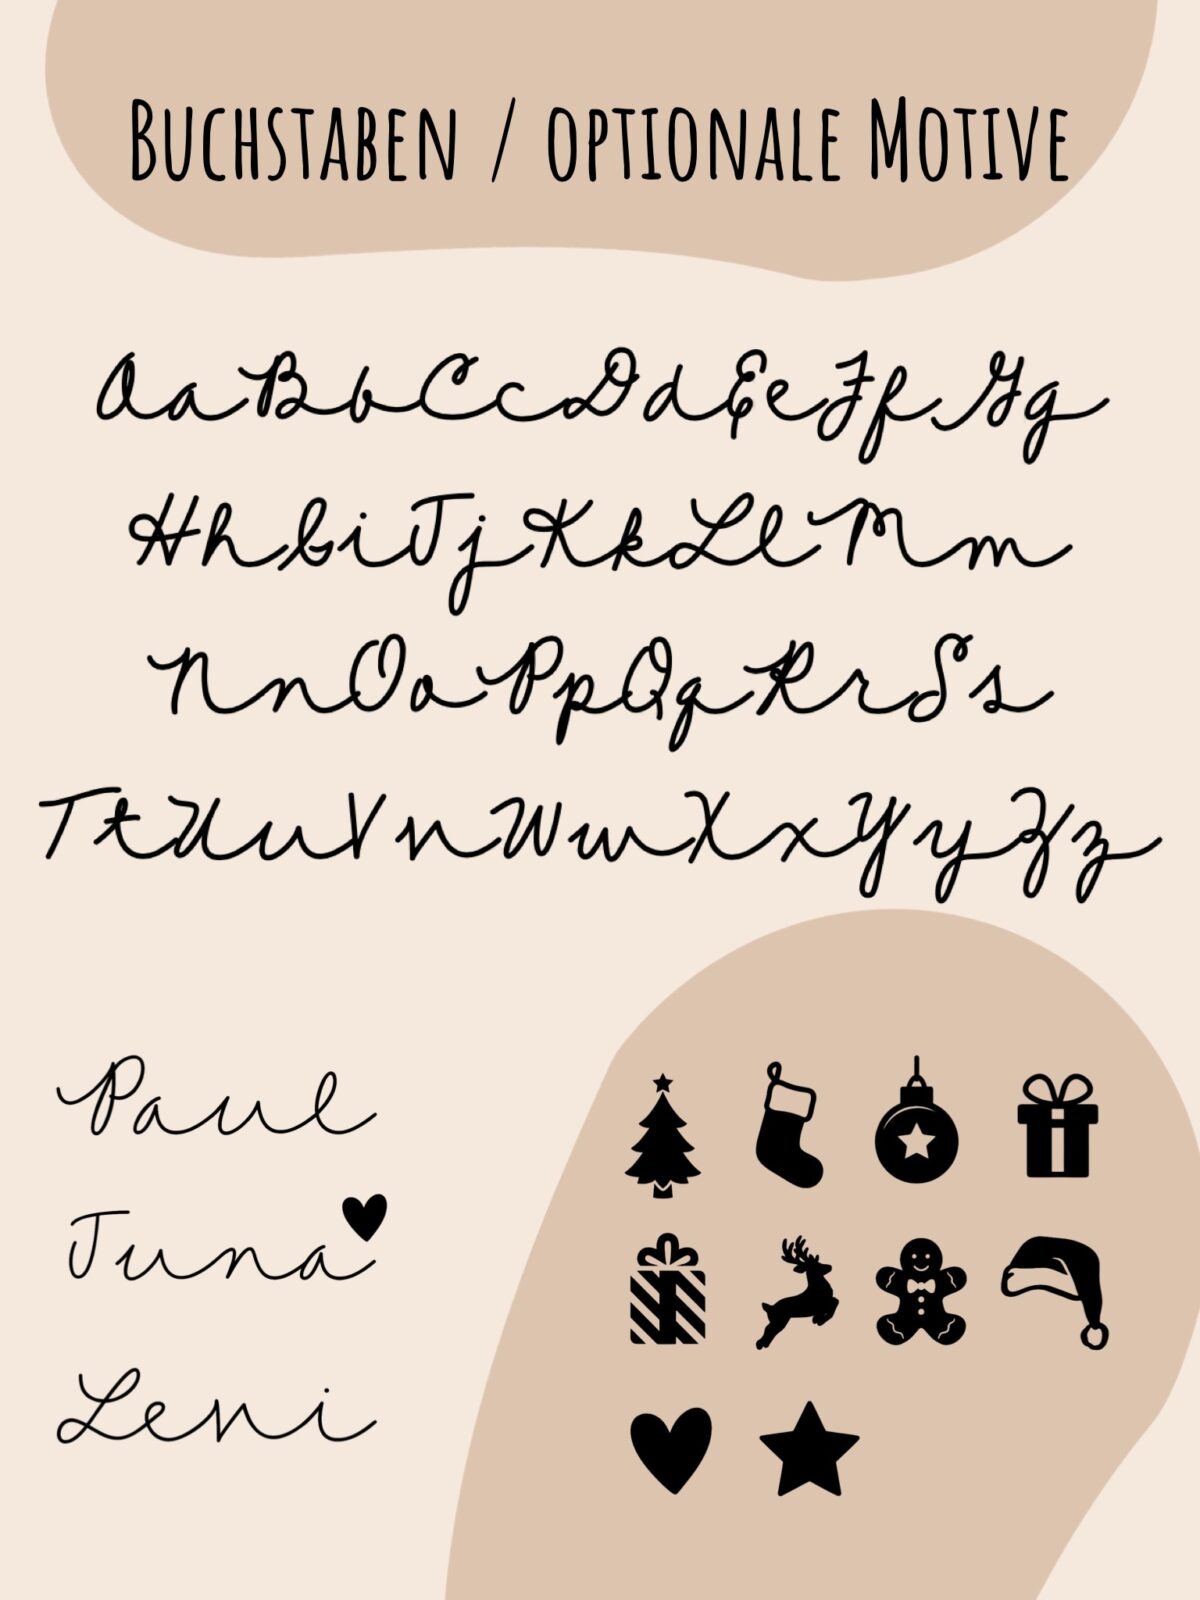 Buchstaben / optionale Motive
AaBbCcDdEeFfGg
HhIiJjKkLlMm
NnOoPpQqRrSs
TtUuVvWwXxYyZz
Paul
Juna
Leni